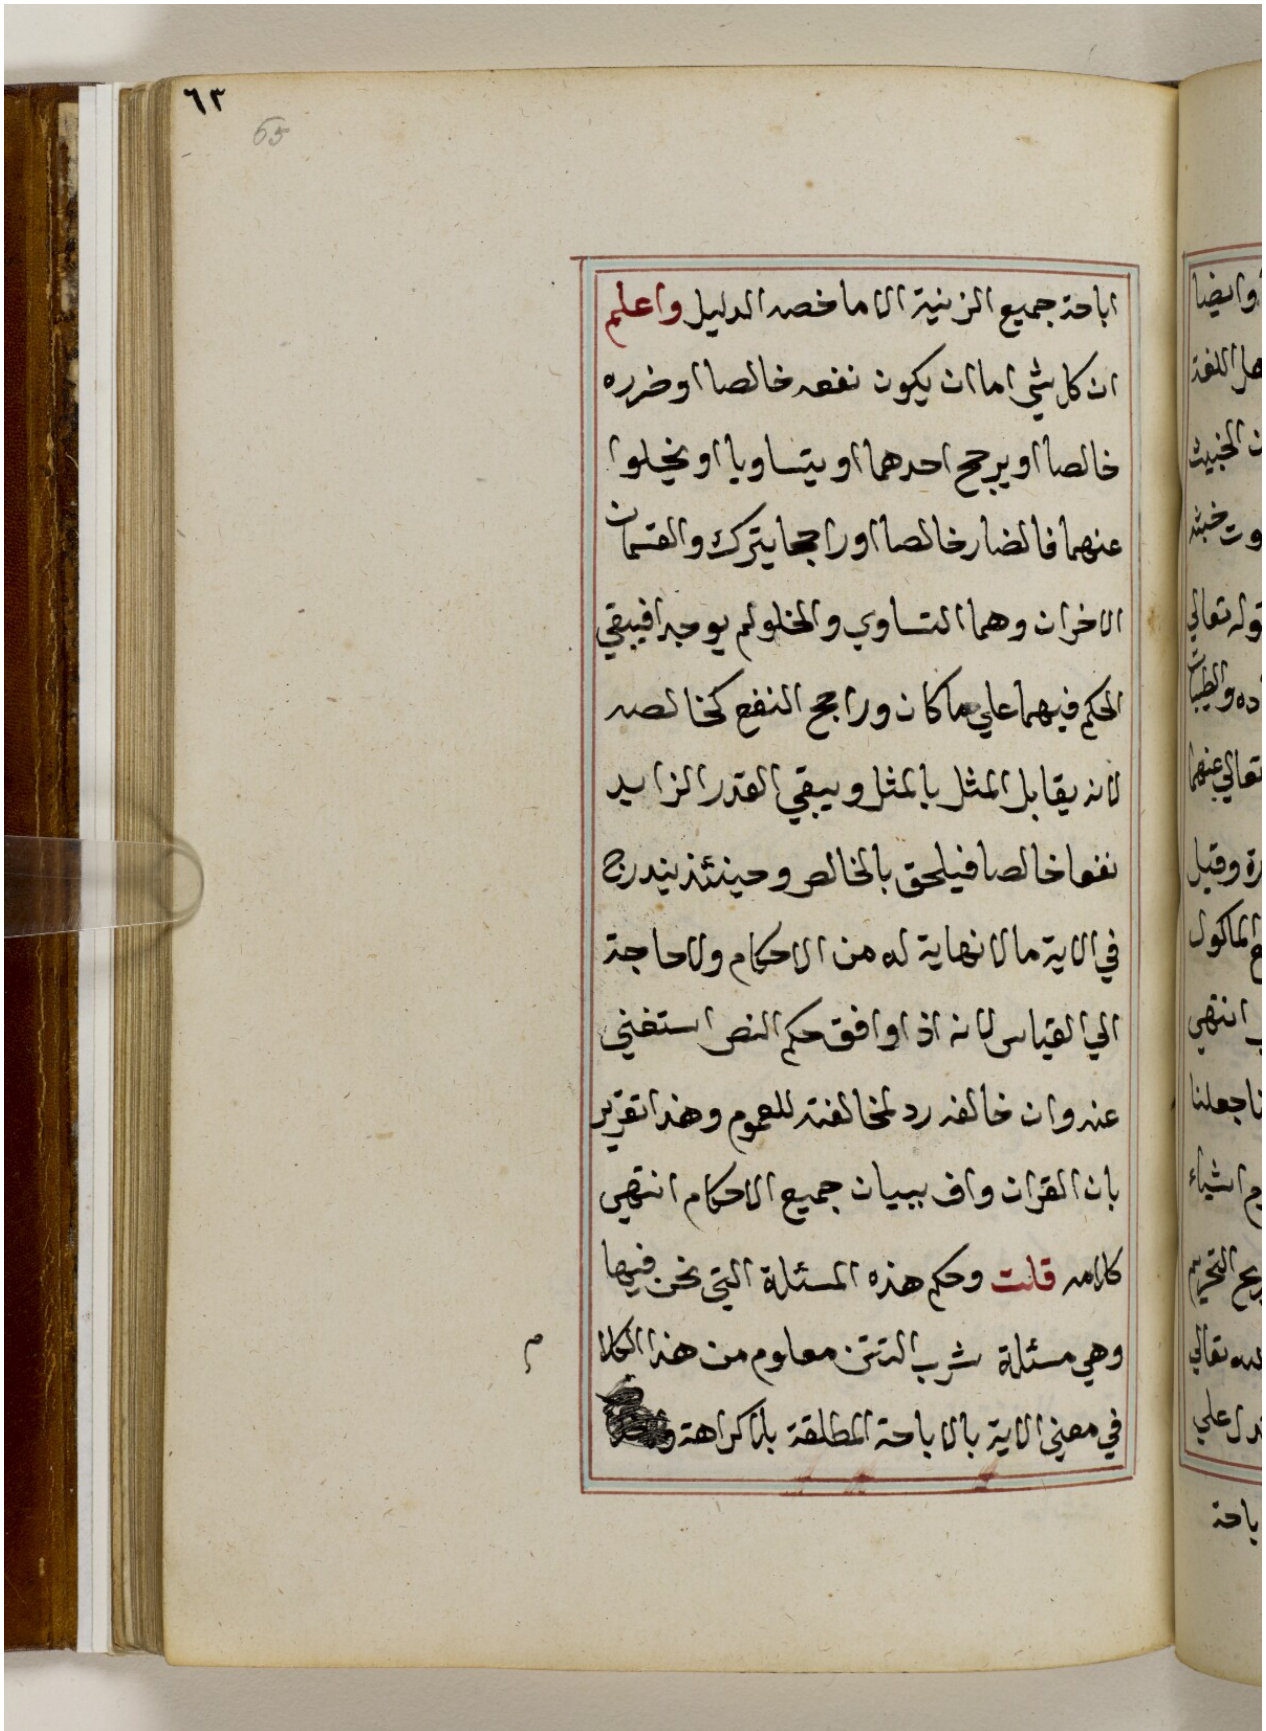 ٦٣
65
اباحة جميع الزينة الا ما خصه الدليل واعلم
ان كل شي اما ان يكون نفعه خالصا او ضرره
خالصا او يرجح احدهما او يتساويا او يخلوا
عنهما فالضار خالصا او راجحا يترك والقسمان
الاخران وهما التساوي والخلو لم يوجدا فيبقي
الحكم فيهما علي ما كان وراجح النفع كخالصه
لانه يقابل المثل بالمثل ويبقي القدر الزايد
نفعا خالصا فيلحق بالخالص وحينئذ يندرج
في الاية ما لا نهاية له من الاحكام ولا حاجة
الي القياس لانه اذا وافق حكم النص استغني
عنه وان خالفه رد لمخالفته للعموم وهذا تقرير
بان القران واف ببيان جميع الاحكام انتهي
كلامه قلت وحكم هذه المسئلة التي نحن فيها
وهي مسئلة شرب التتن معلوم من هذا الكلا
م
في معني الاية بالاباحة المطلقة بلا كراهة
وايضا
هل اللغة
ن الخبيث
وت خبثه
قوله تعالي
ده والطيبات
تعالي عنهما
رة وقيل
الماكول
انتهي
نا جعلنا
م اشياء
يح التحريم
الله تعالي
تدل علي
باحة